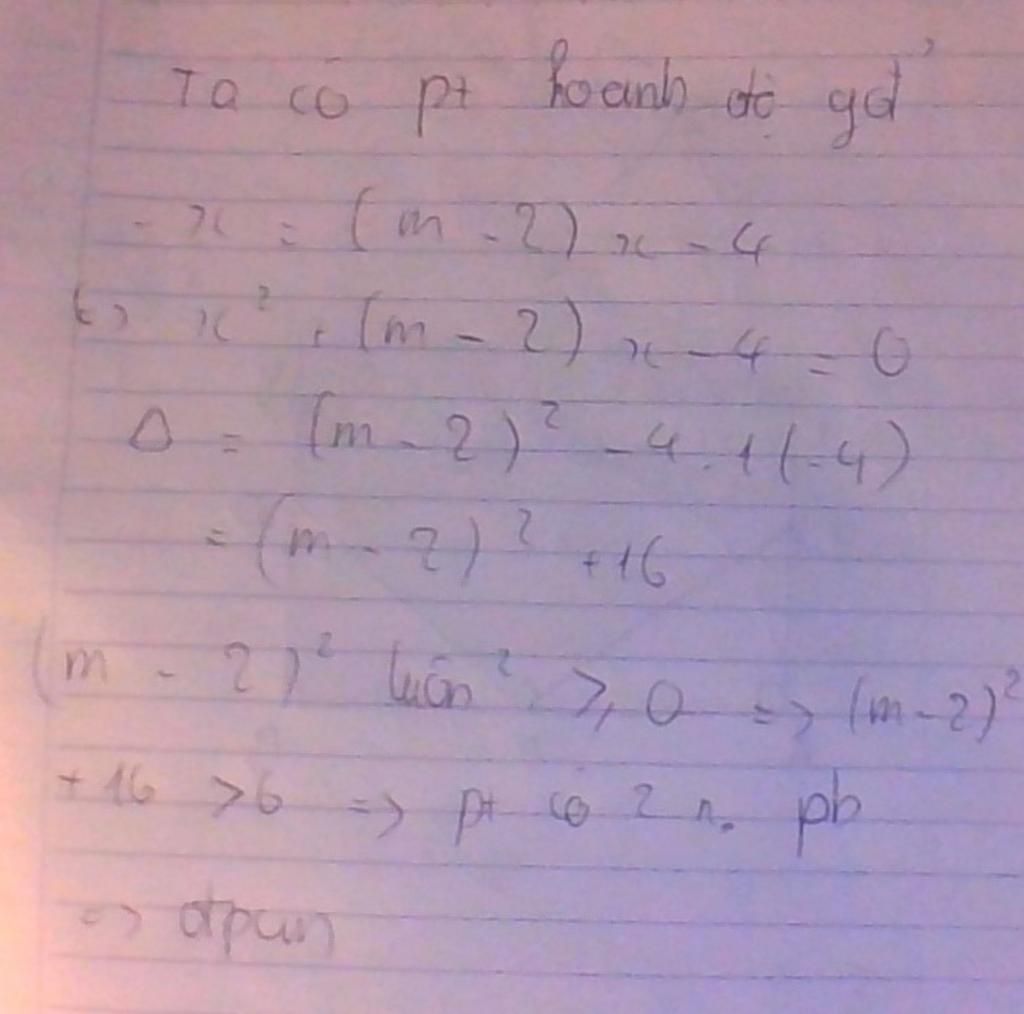 Ta có pt hoanh độ gđ
- x = (m - 2) x - 4
<> x² + (m - 2) x - 4 = 0
Δ = (m - 2)² - 4 . 1 (-4)
= (m - 2)² + 16
(m - 2)² luôn ≥ 0 => (m - 2)²
+ 16 > 6 => pt có 2 n. pb
=> đpcm